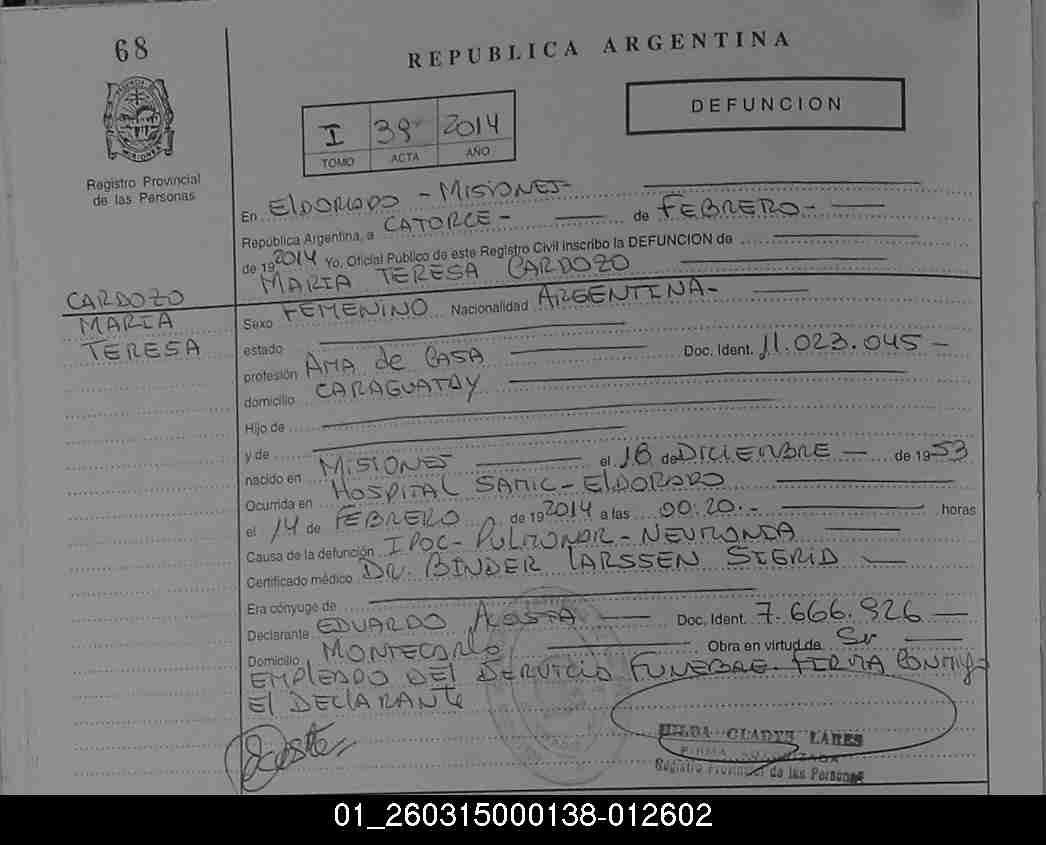 68
REPUBLICA ARGENTINA
DEFUNCION
I 39 2014
TOMO ACTA AÑO
Registro Provincial
de las Personas
En ELDORADO - MISIONES -
República Argentina, a CATORCE - de FEBRERO -
de 19 2014 Yo, Oficial Público de este Registro Civil inscribo la DEFUNCION de
MARIA TERESA CARDOZO
CARDOZO
MARIA
TERESA
Sexo FEMENINO Nacionalidad ARGENTINA -
estado
profesión AMA de CASA Doc. Ident. 11.023.045 -
domicilio CARAGUATAY
Hijo de
y de
nacido en MISIONES el 16 de DICIEMBRE - de 1953
Ocurrida en HOSPITAL SAMIC - ELDORADO
el 14 de FEBRERO de 19 2014 a las 00.20.- horas
Causa de la defunción IPOC - PULMONAR - NEUMONIA
Certificado médico DR. BINDER LARSSEN SIGRID
Era cónyuge de
Declarante EDUARDO ACOSTA Doc. Ident. 7.666.926
Domicilio MONTECARLO Obra en virtud de Ser
EMPLEADO DEL SERVICIO FUNEBRE. FIRMA CONMIGO
El DECLARANTE
HILDA GLADYS LARES
FIRMA AUTORIZADA
Registro Provincial de las Personas
01_260315000138-012602